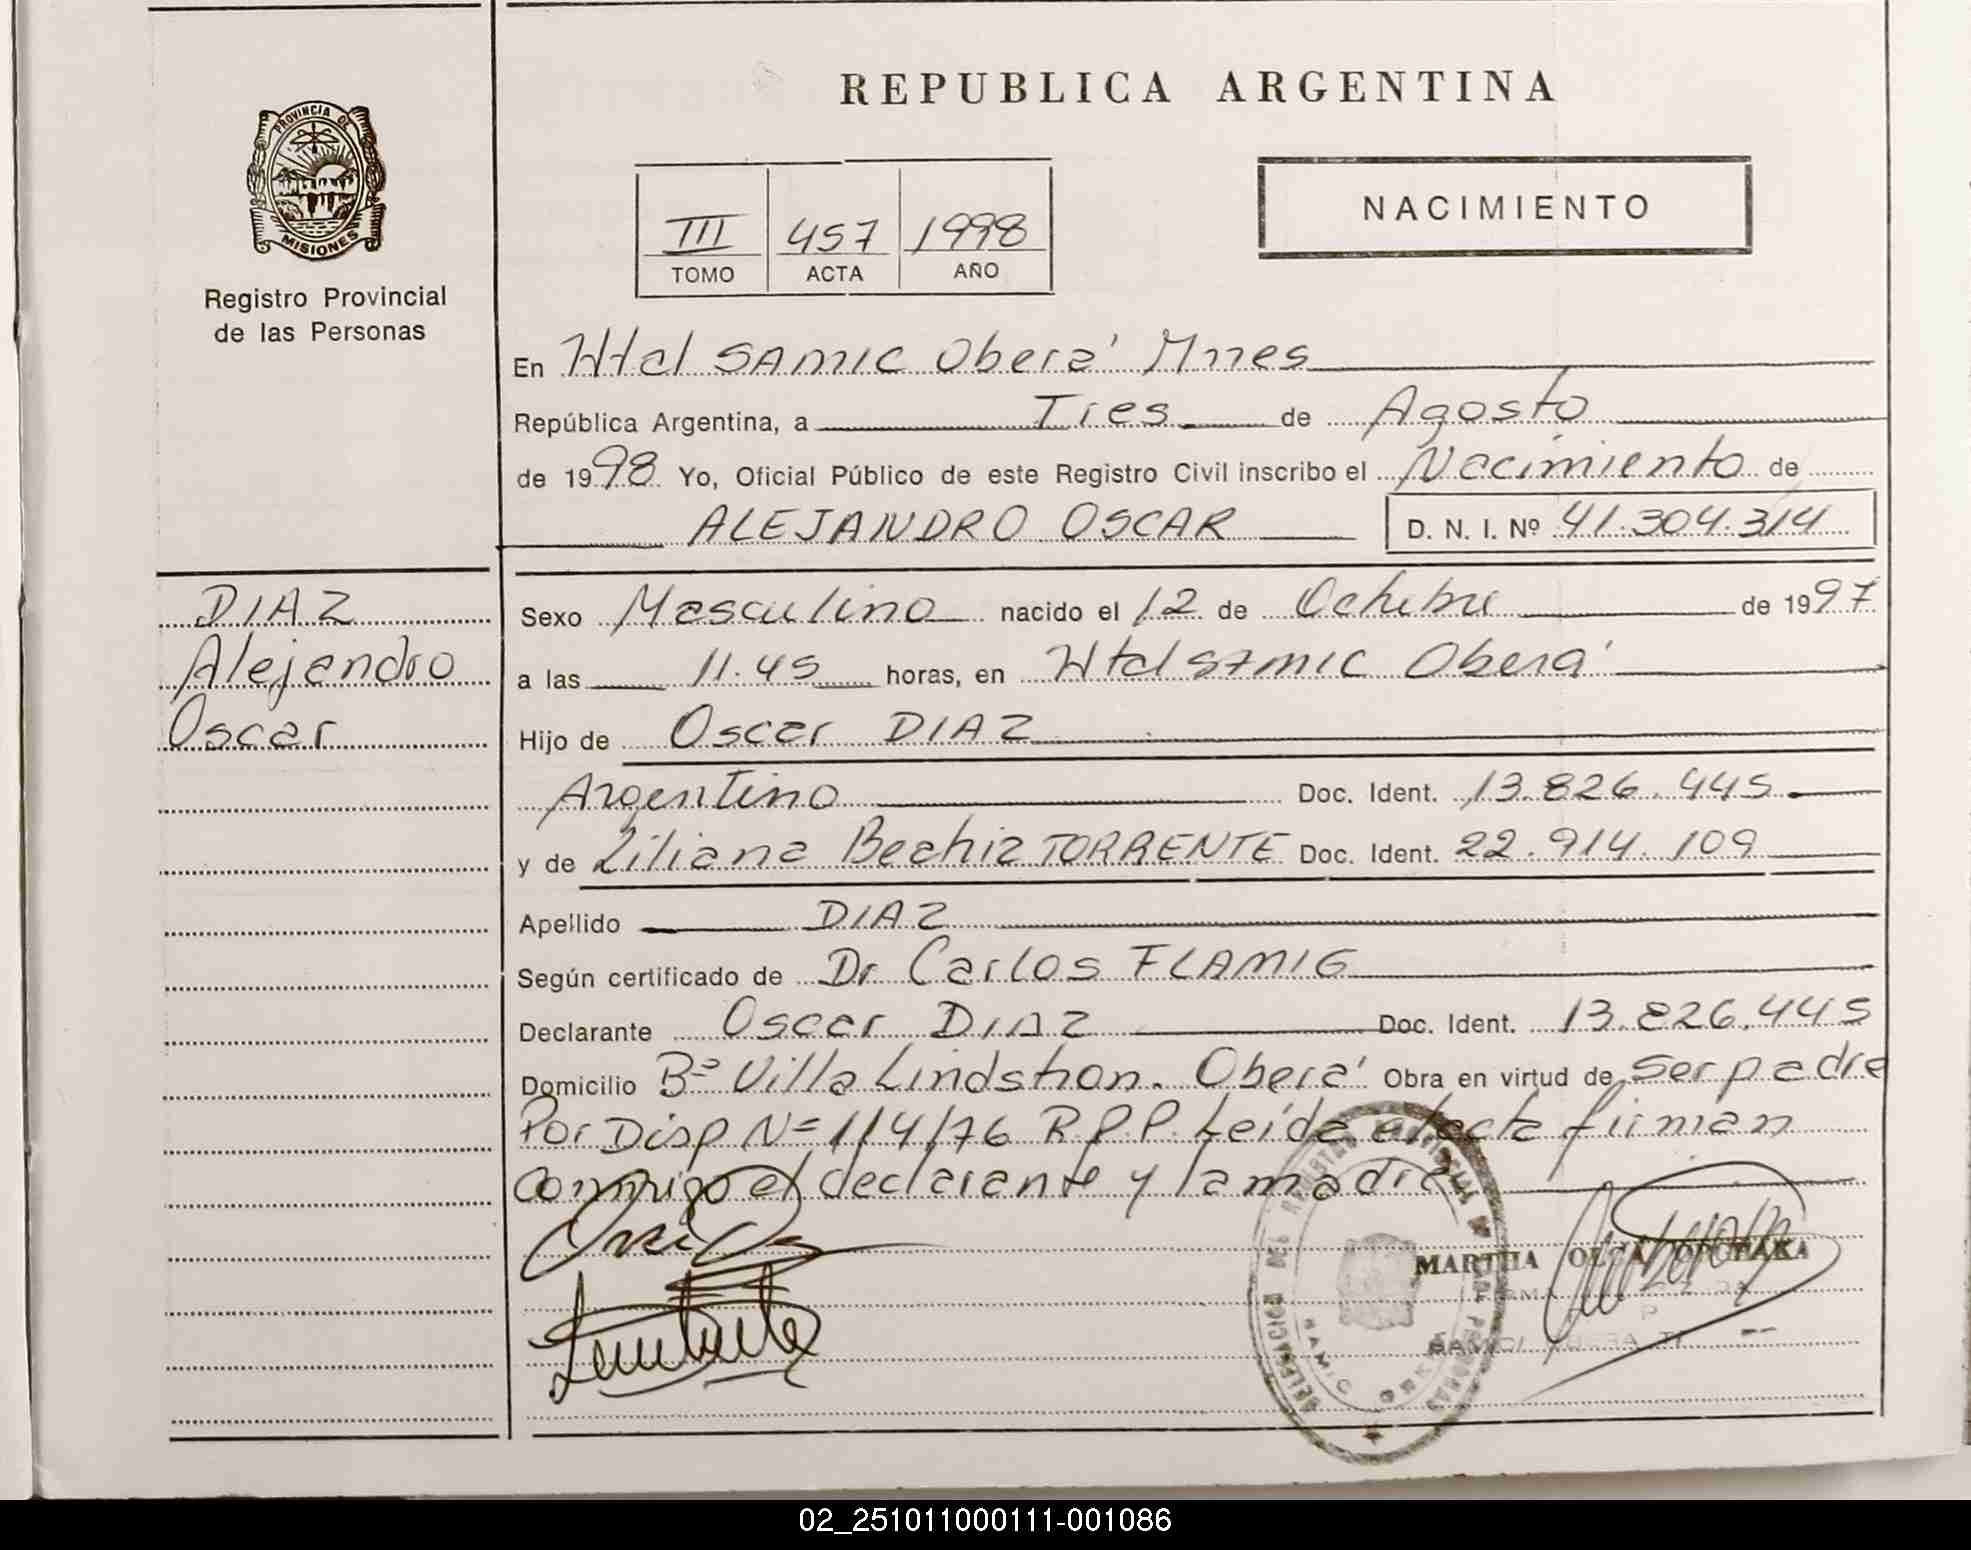 PROVINCIA DE
MISIONES
Registro Provincial
de las Personas
REPUBLICA ARGENTINA
III 457 1998
TOMO ACTA AÑO
NACIMIENTO
En Htal SAMIC Oberá Mnes
República Argentina, a Tres de Agosto
de 1998 Yo, Oficial Público de este Registro Civil inscribo el Nacimiento de
ALEJANDRO OSCAR D. N. I. Nº 41.304.314
DIAZ
Alejandro
Oscar
Sexo Masculino nacido el 12 de Octubre de 1997
a las 11.45 horas, en Htal SAMIC Oberá
Hijo de Oscar DIAZ
Argentino Doc. Ident. 13.826.445
y de Liliana Beatriz TORRENTE Doc. Ident. 22.914.109
Apellido DIAZ
Según certificado de Dr Carlos FLAMIG
Declarante Oscar DIAZ Doc. Ident. 13.826.445
Domicilio Bº Villa Lindstron. Oberá Obra en virtud de ser padre
Por Disp Nº 114/76 R.P.P. Leída el acta firman
conmigo el declarante y la madre
MARTHA OLGA
02_251011000111-001086